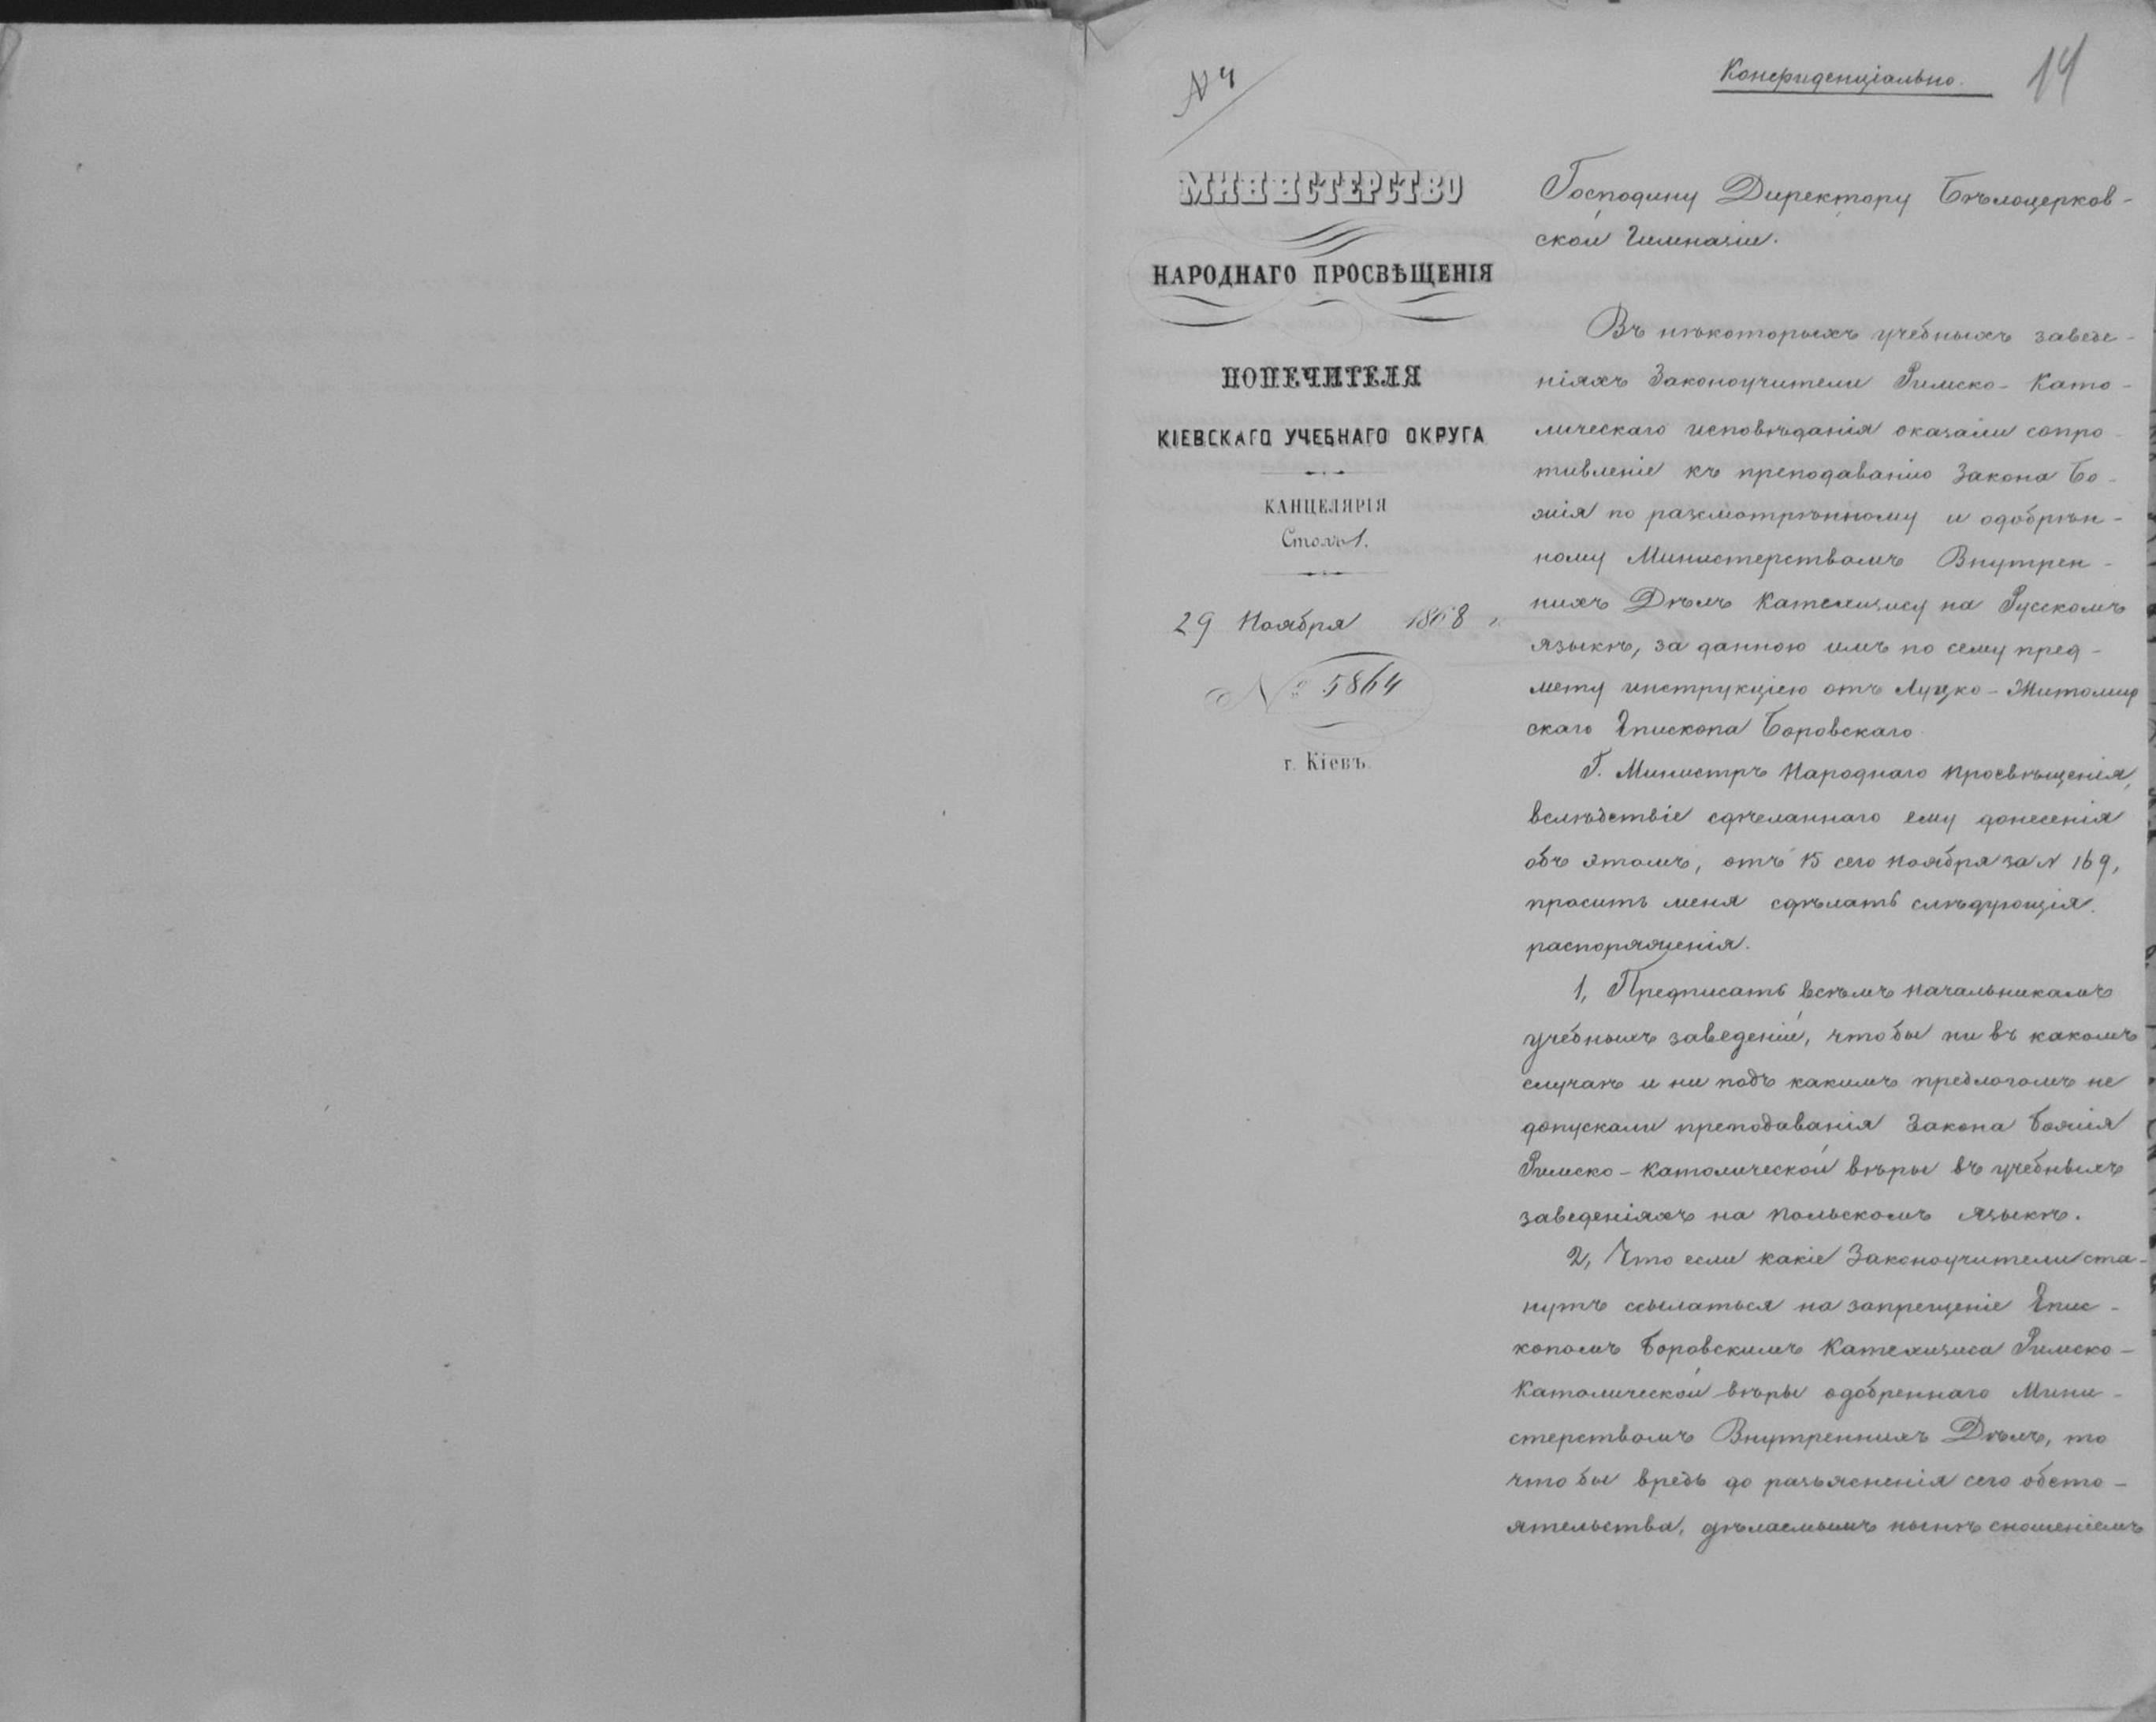 № 4
Конфиденціально.
14
МИНИСТЕРСТВО
НАРОДНАГО ПРОСВѢЩЕНІЯ
ПОПЕЧИТЕЛЯ
КІЕВСКАГО УЧЕБНАГО ОКРУГА
КАНЦЕЛЯРІЯ
Столъ 1.
29 Ноября 1868 г.
№ 5864
г. Кіевъ.
Господину Директору Бѣлоцерков-
ской Гимназіи.
Въ нѣкоторыхъ учебныхъ заведе-
ніяхъ Законоучители Римско-Като-
лическаго исповѣданія оказали сопро-
тивленіе къ преподаванію Закона Бо-
жія по разсмотрѣнному и одобрѣн-
ному Министерствомъ Внутрен-
нихъ Дѣлъ Катехизису на Русскомъ
языкѣ, за данною имъ по сему пред-
мету инструкціею отъ Луцко-Житомир
скаго Епископа Боровскаго.
Г. Министръ Народнаго Просвѣщенія,
вслѣдствіе сдѣланнаго ему донесенія
объ этомъ, отъ 15 сего Ноября за № 169,
проситъ меня сдѣлать слѣдующія
распоряженія.
1, Предписать всѣмъ Начальникамъ
учебныхъ заведеній, чтобы ни въ какомъ
случаѣ и ни подъ какимъ предлогомъ не
допускали преподаванія Закона Божія
Римско-Католической вѣры въ учебныхъ
заведеніяхъ на Польскомъ языкѣ.
2, Что если какіе Законоучители ста-
нутъ ссылаться на запрещеніе Епис-
копомъ Боровскимъ Катехизиса Римско-
Католической вѣры одобреннаго Мини-
стерствомъ Внутреннихъ Дѣлъ, то
чтобы впредь до разъясненія сего обсто-
ятельства, дѣлаемымъ нынѣ сношеніемъ